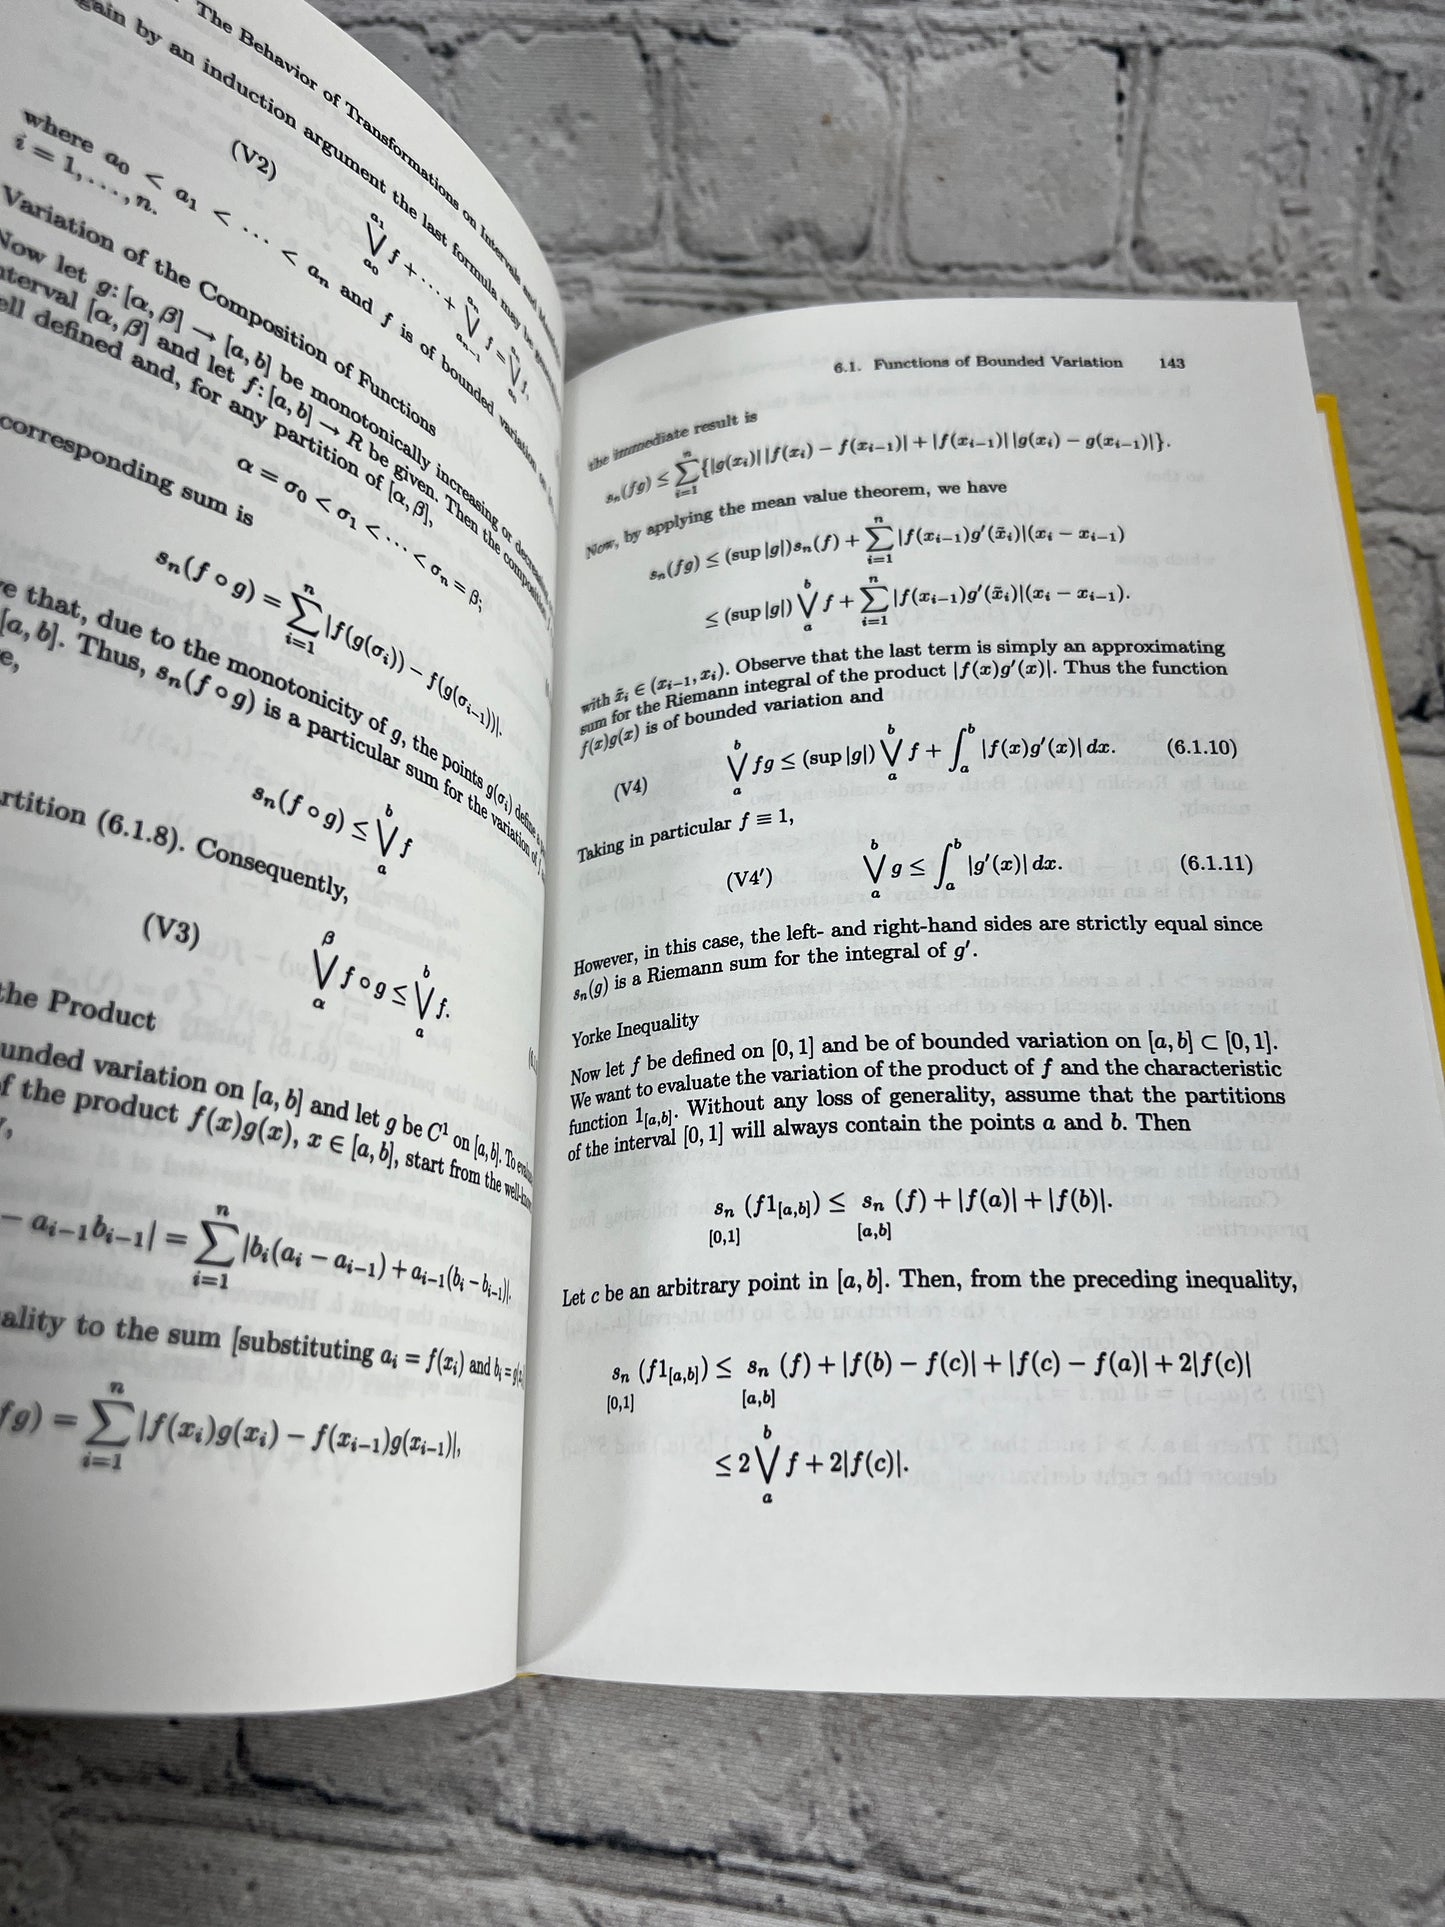 The Behavior of Transformations on Intervals and
gain by an induction argument the last formula may be
(V2) \bigvee_{a_0}^{a_1} f + \cdots + \bigvee_{a_{n-1}}^{a_n} f = \bigvee_{a_0}^{a_n} f,
where a_0 < a_1 < \cdots < a_n and f is of bounded variation on
i = 1, ..., n.
Variation of the Composition of Functions
Now let g: [α, β] → [a, b] be monotonically increasing or decreasing
interval [α, β] and let f: [a, b] → R be given. Then the composition
ell defined and, for any partition of [α, β],
α = σ_0 < σ_1 < \cdots < σ_n = β;
corresponding sum is
s_n(f ∘ g) = \sum_{i=1}^{n} |f(g(σ_i)) − f(g(σ_{i−1}))|.
e that, due to the monotonicity of g, the points g(σ_i) define a
[a, b]. Thus, s_n(f ∘ g) is a particular sum for the variation of f
e,
s_n(f ∘ g) ≤ \bigvee_a^b f
rtition (6.1.8). Consequently,
(V3) \bigvee_α^β f ∘ g ≤ \bigvee_a^b f.
the Product
unded variation on [a, b] and let g be C^1 on [a, b]. To
f the product f(x)g(x), x ∈ [a, b], start from the
− a_{i−1}b_{i−1}| = \sum_{i=1}^{n} |b_i(a_i − a_{i−1}) + a_{i−1}(b_i − b_{i−1})|.
ality to the sum [substituting a_i = f(x_i) and b_i =
fg) = \sum_{i=1}^{n} |f(x_i)g(x_i) − f(x_{i−1})g(x_{i−1})|,
6.1. Functions of Bounded Variation 143
the immediate result is
s_n(fg) ≤ \sum_{i=1}^{n} {|g(x_i)| |f(x_i) − f(x_{i−1})| + |f(x_{i−1})| |g(x_i) − g(x_{i−1})|}.
Now, by applying the mean value theorem, we have
s_n(fg) ≤ (sup |g|)s_n(f) + \sum_{i=1}^{n} |f(x_{i−1})g′(x̃_i)|(x_i − x_{i−1})
≤ (sup |g|) \bigvee_a^b f + \sum_{i=1}^{n} |f(x_{i−1})g′(x̃_i)|(x_i − x_{i−1}).
with x̃_i ∈ (x_{i−1}, x_i). Observe that the last term is simply an approximating
sum for the Riemann integral of the product |f(x)g′(x)|. Thus the function
f(x)g(x) is of bounded variation and
(V4) \bigvee_a^b fg ≤ (sup |g|) \bigvee_a^b f + \int_a^b |f(x)g′(x)| dx. (6.1.10)
Taking in particular f ≡ 1,
(V4′) \bigvee_a^b g ≤ \int_a^b |g′(x)| dx. (6.1.11)
However, in this case, the left- and right-hand sides are strictly equal since
s_n(g) is a Riemann sum for the integral of g′.
Yorke Inequality
Now let f be defined on [0, 1] and be of bounded variation on [a, b] ⊂ [0, 1].
We want to evaluate the variation of the product of f and the characteristic
function 1_{[a,b]}. Without any loss of generality, assume that the partitions
of the interval [0, 1] will always contain the points a and b. Then
s_n (f1_{[a,b]}) ≤ s_n (f) + |f(a)| + |f(b)|.
[0,1] [a,b]
Let c be an arbitrary point in [a, b]. Then, from the preceding inequality,
s_n (f1_{[a,b]}) ≤ s_n (f) + |f(b) − f(c)| + |f(c) − f(a)| + 2|f(c)|
[0,1] [a,b]
≤ 2 \bigvee_a^b f + 2|f(c)|.